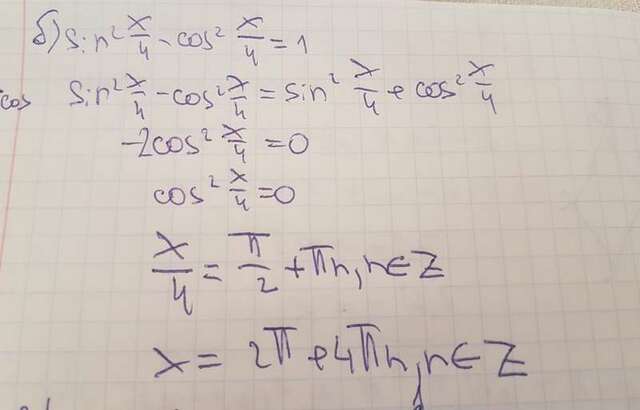 б) sin² x/4 - cos² x/4 = 1
cos sin² x/4 - cos² x/4 = sin² x/4 + cos² x/4
-2cos² x/4 = 0
cos² x/4 = 0
x/4 = π/2 + πn, n ∈ Z
x = 2π + 4πn, n ∈ Z